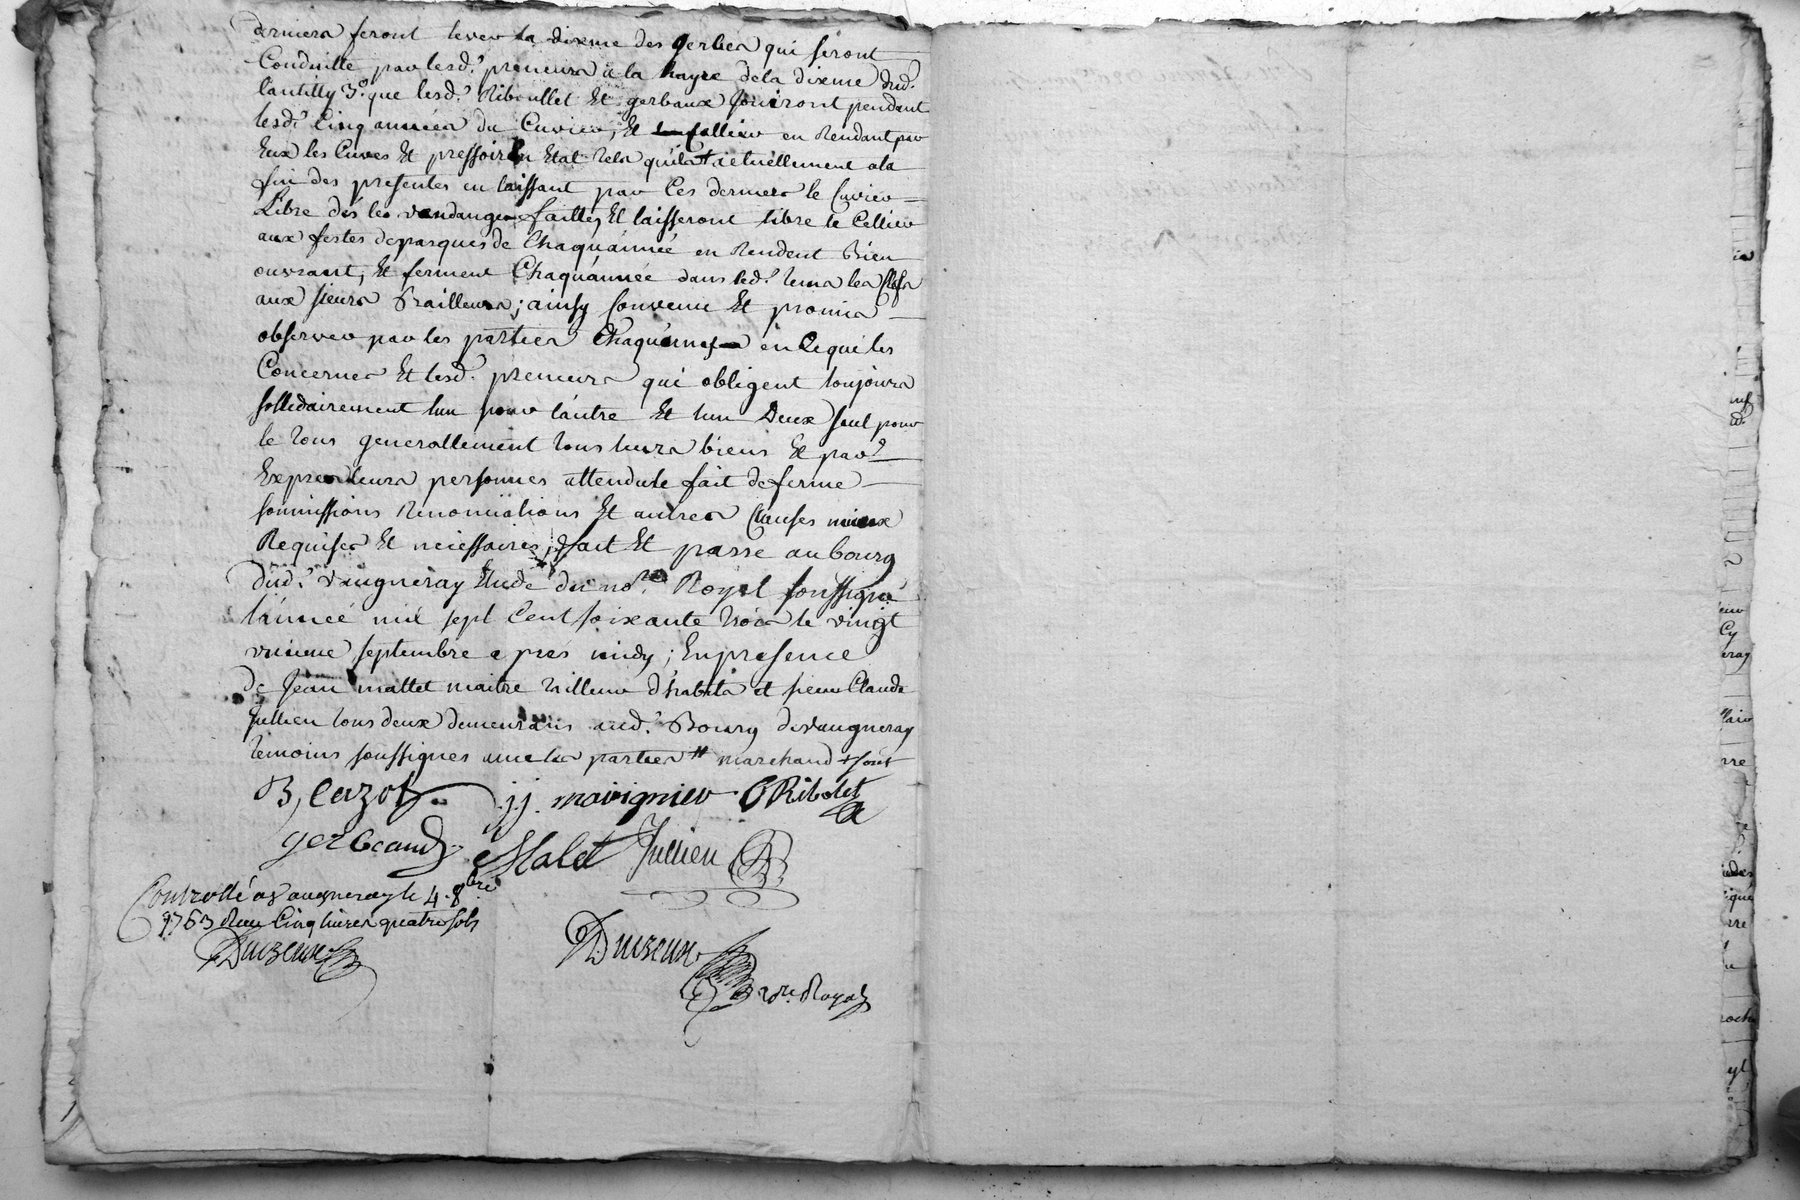 derniers feront lever la dixme des gerbes qui seront
Conduitte par lesd.s preneurs a la hayre dela dixme dud.
lantilly 3.o que lesd.s Riboullet Et gerbaux Jouiront pendant
lesd.s Cinq années du Cuvier, Et cellier en Rendant par
Eux les Cuves Et pressoir En Etat tels quils actuellement ala
fin des presentes en laissant par Ces derniers le Cuvier
Libre dés les vandanges faittes, Et laisseront libre le Cellier
aux festes depasques de Chaquánnée en Rendent Bien
ouvrant, Et ferment Chaquánnée dans led.t tems les Clefs
aux sieurs Bailleurs; ainsy Convenu Et promis
observer par les parties Chaquúne en cequi les
Concernes Et lesd.s preneurs qui obligent toujours
sollidairement lun pour láutre Et lun Deux seul pour
le tous generallement tous leurs biens Et par
Exprès leurs personnes attendu le fait de ferme
soumissions renonciations Et autres Clauses mieux
Requises Et necessaires, fait Et passé au bourg
dud.t vaugneray Etude du no.re Royal soussigné
lánneé mil sept Cent soixante trois le vingt
unieme septembre apres midy; En presence
De Jean mallet maitre tailleur d'habits et sieur Claude
Jullien tous deux demeurans aud.t Bourg devaugneray
temoins soussignes avec les parties # marchand + sont
B, Cuzot j.j. marignier C Ribolet
gerbeaud Malet Jullien
Controllé a vaugneray le 4. 8bre
1763 Reçu Cinq livres quatre sols
Duizeux
Duizeux
No.re Royal